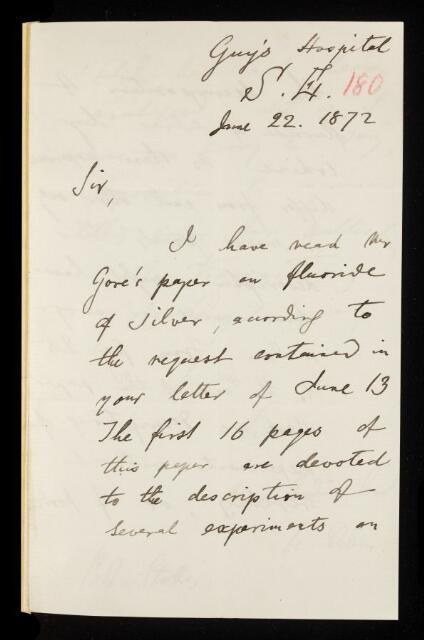 Guy's Hospital
S. E.
180
June 22. 1872
Sir,
I have read Mr
Gore's paper on fluoride
of silver, according to
the request contained in
your letter of June 13
The first 16 pages of
this paper are devoted
to the description of
several experiments on